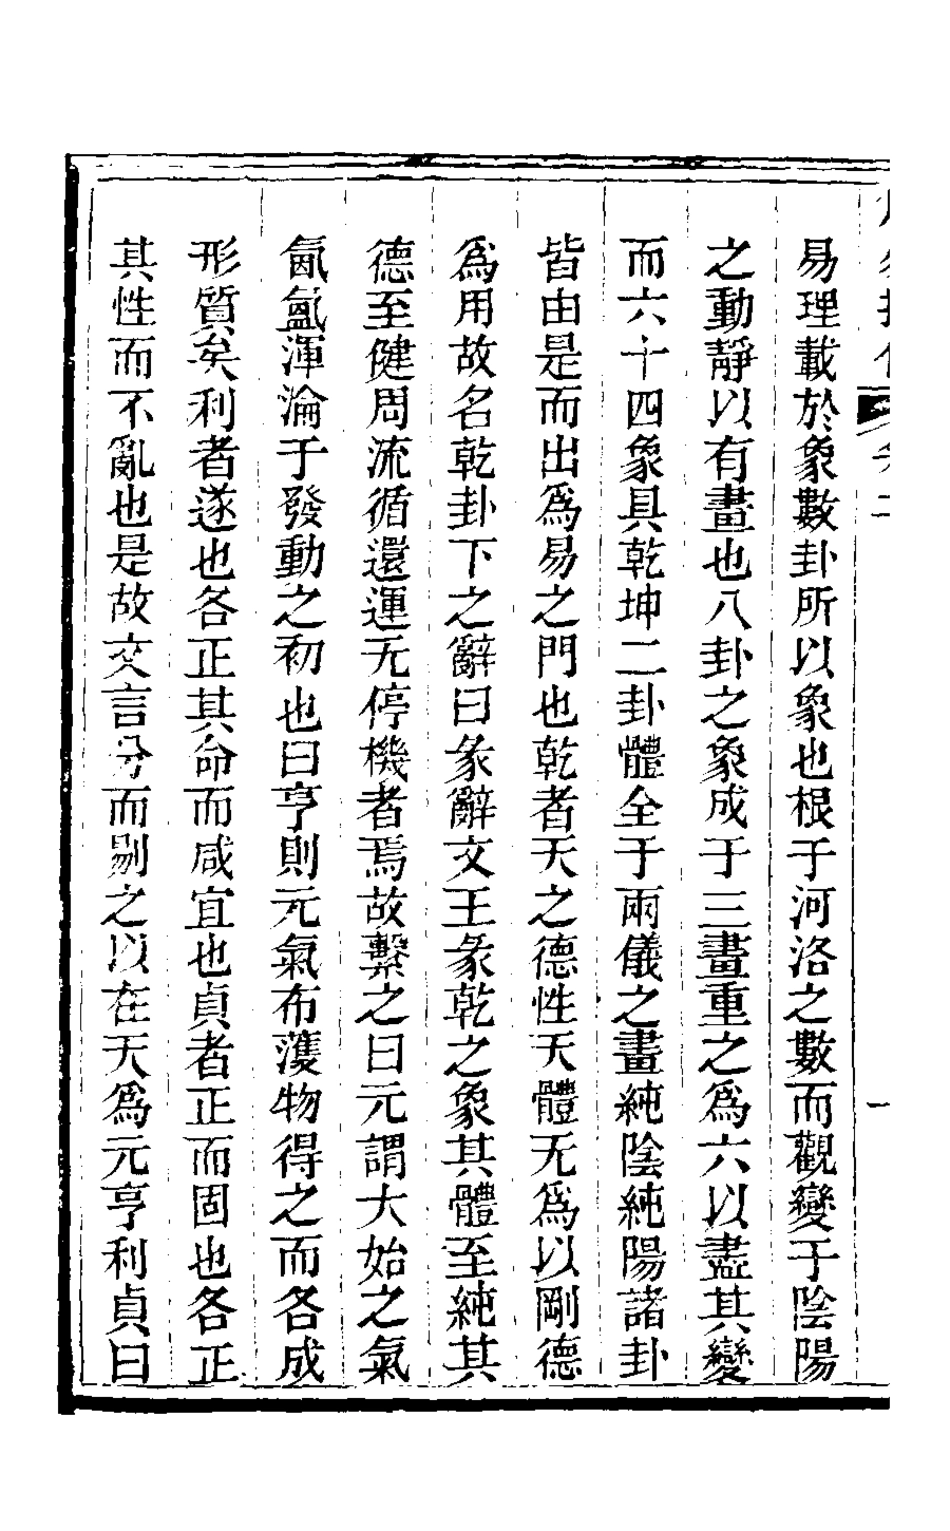 易理載於象數卦所以象也根于河洛之數而觀變于陰陽
之動靜以有畫也八卦之象成于三畫重之爲六以盡其變
而六十四象具乾坤二卦體全于兩儀之畫純陰純陽諸卦
皆由是而出爲易之門也乾者天之德性天體无爲以剛德
爲用故名乾卦下之辭曰彖辭文王彖乾之象其體至純其
德至健周流循還運无停機者焉故繫之曰元謂大始之氣
氤氳渾淪于發動之初也曰亨則元氣布濩物得之而各成
形質矣利者遂也各正其命而咸宜也貞者正而固也各正
其性而不亂也是故文言分而剔之以在天爲元亨利貞曰